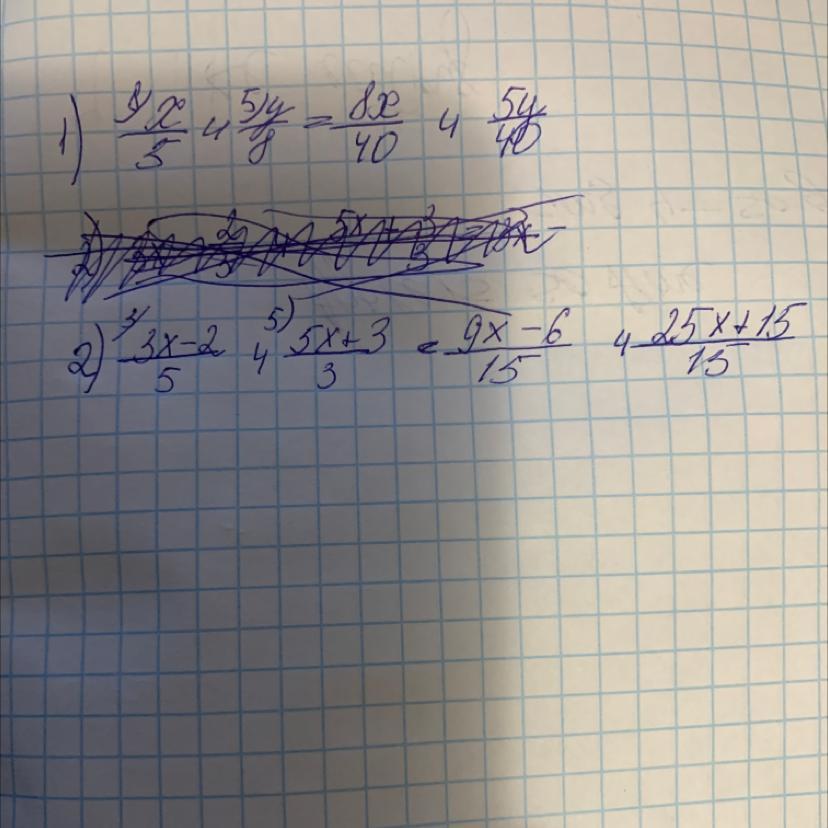 1) 8) x/5 и 5) y/8 = 8x/40 и 5y/40
2) 3) 3x-2/5 и 5) 5x+3/3 = 9x-6/15 и 25x+15/15